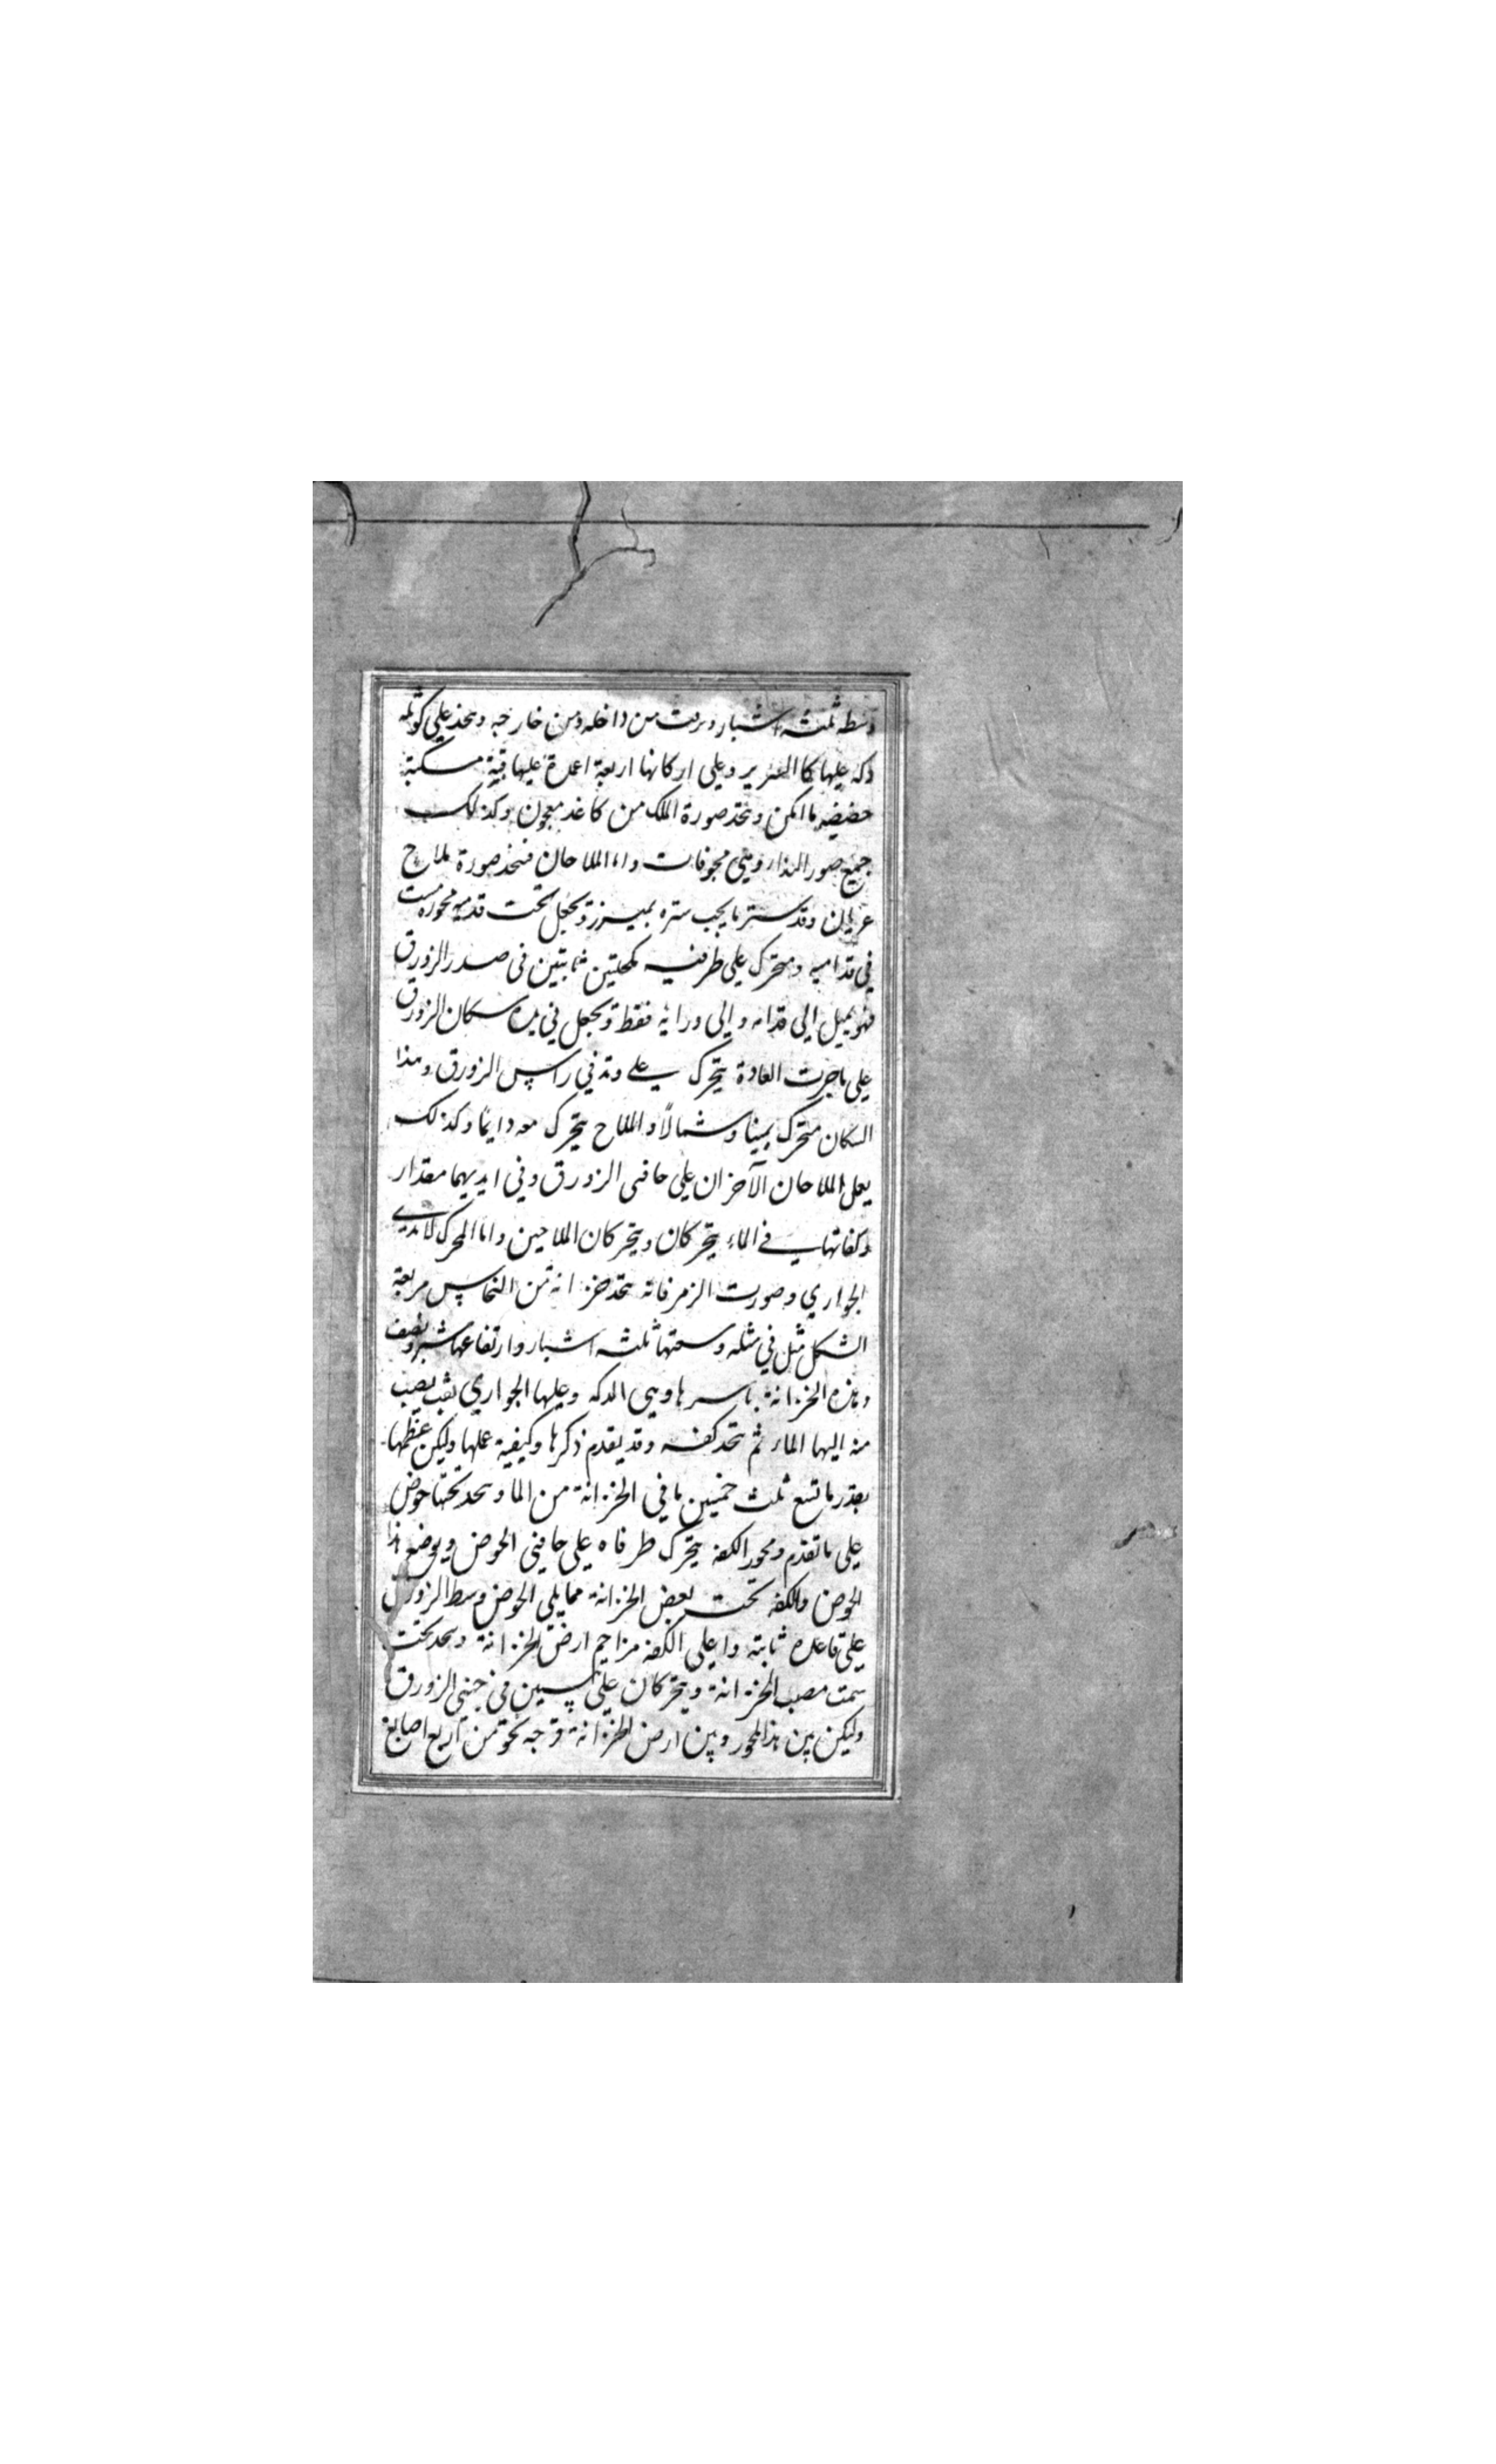 وسطه ثلثه اشبار ويزفت من داخله ومن خارجه ويتخذ علي كوثله
دكه عليها كالسرير وعلي اركانها اربعة اعمدة عليها قبة مسكبة
خفيفه ما امكن ويتخذ صورة الملك من كاغذ معجون وكذلك
جميع صور الندا وهي مجوفات واما الملاحان فتتخذ صورة ملاح
عريان وقد ستر ما يجب ستره بميزر وتجعل تحت قدميه محور مست
في قداميه ومتحرك علي طرفيه كمحلتين ثابتين في صدر الزورق
فهو يميل الي قدامه والي ورايه فقط وتجعل في يده سكان الزورق
علي ما جرت العادة يتحرك علي وتد في راس الزورق وهذا
السكان متحرك يمينا وشمالاً والملاح يتحرك معه دايمًا وكذلك
يعمل الملاحان الآخران علي حافتي الزورق وفي ايديهما مقدار
وكفاتها في الماء يتحركان ويتحركان الملاحين واما المحرك لايدي
الجواري وصورت الزمر فانه يتخذ خزانة من النحاس مربعة
الشكل مثل في مثله وسعتها ثلثه اشبار وارتفاعها شبر ونصف
وهذه الخزانة باسرها وهي الدكه وعليها الجواري ثقب يصب
منه اليها الماء ثم يتخذ كفه وقد تقدم ذكرها وكيفية عملها وليكن عظمها
بقدر ما تسع ثلث خمسين ما في الخزانة من الما ويتخذ تحتها حوض
علي ما تقدم ومحور الكفه يتحرك طرفاه علي حافتي الحوض ويوضع هذا
الحوض والكفه تحت بعض الخزانة مما يلي الحوض وسط الزورق
علي قاعده ثابته واعلي الكفه مزاحم ارض الخزانة ويتخذ تحت
سمت مصب الخزانة ويتحركان علي في جنبي الزورق
وليكن بين هذا المحور وبين ارض الخزانة فرجه نحو من اربع اصابع